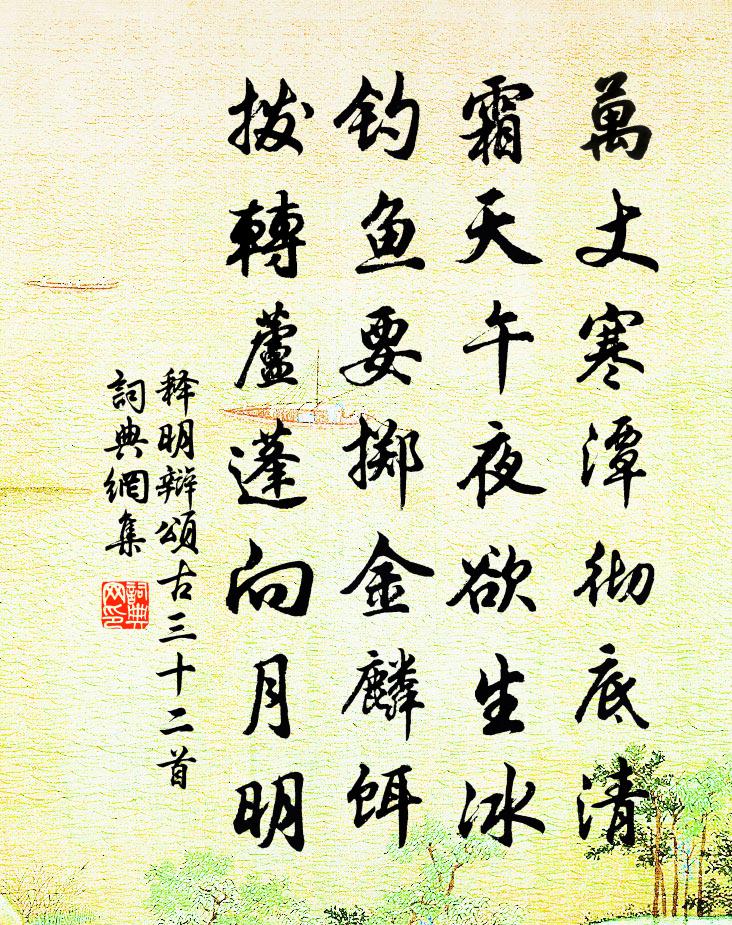 萬丈寒潭彻底清
霜天午夜欲生冰
钓鱼要掷金麟饵
拨轉蘆蓬向月明
释明辩頌古三十二首
詞典網集
詞典网印